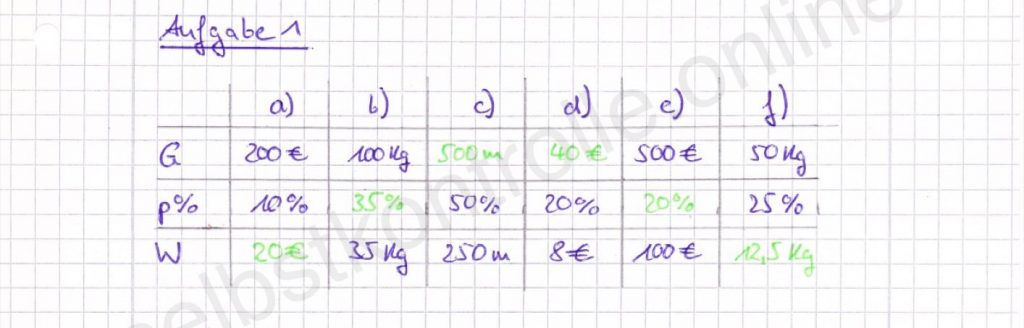 Aufgabe 1
a) b) c) d) e) f)
G 200€ 100kg 500m 40€ 500€ 50kg
p% 10% 35% 50% 20% 20% 25%
W 20€ 35kg 250m 8€ 100€ 12,5kg
selbstkontrolle.online